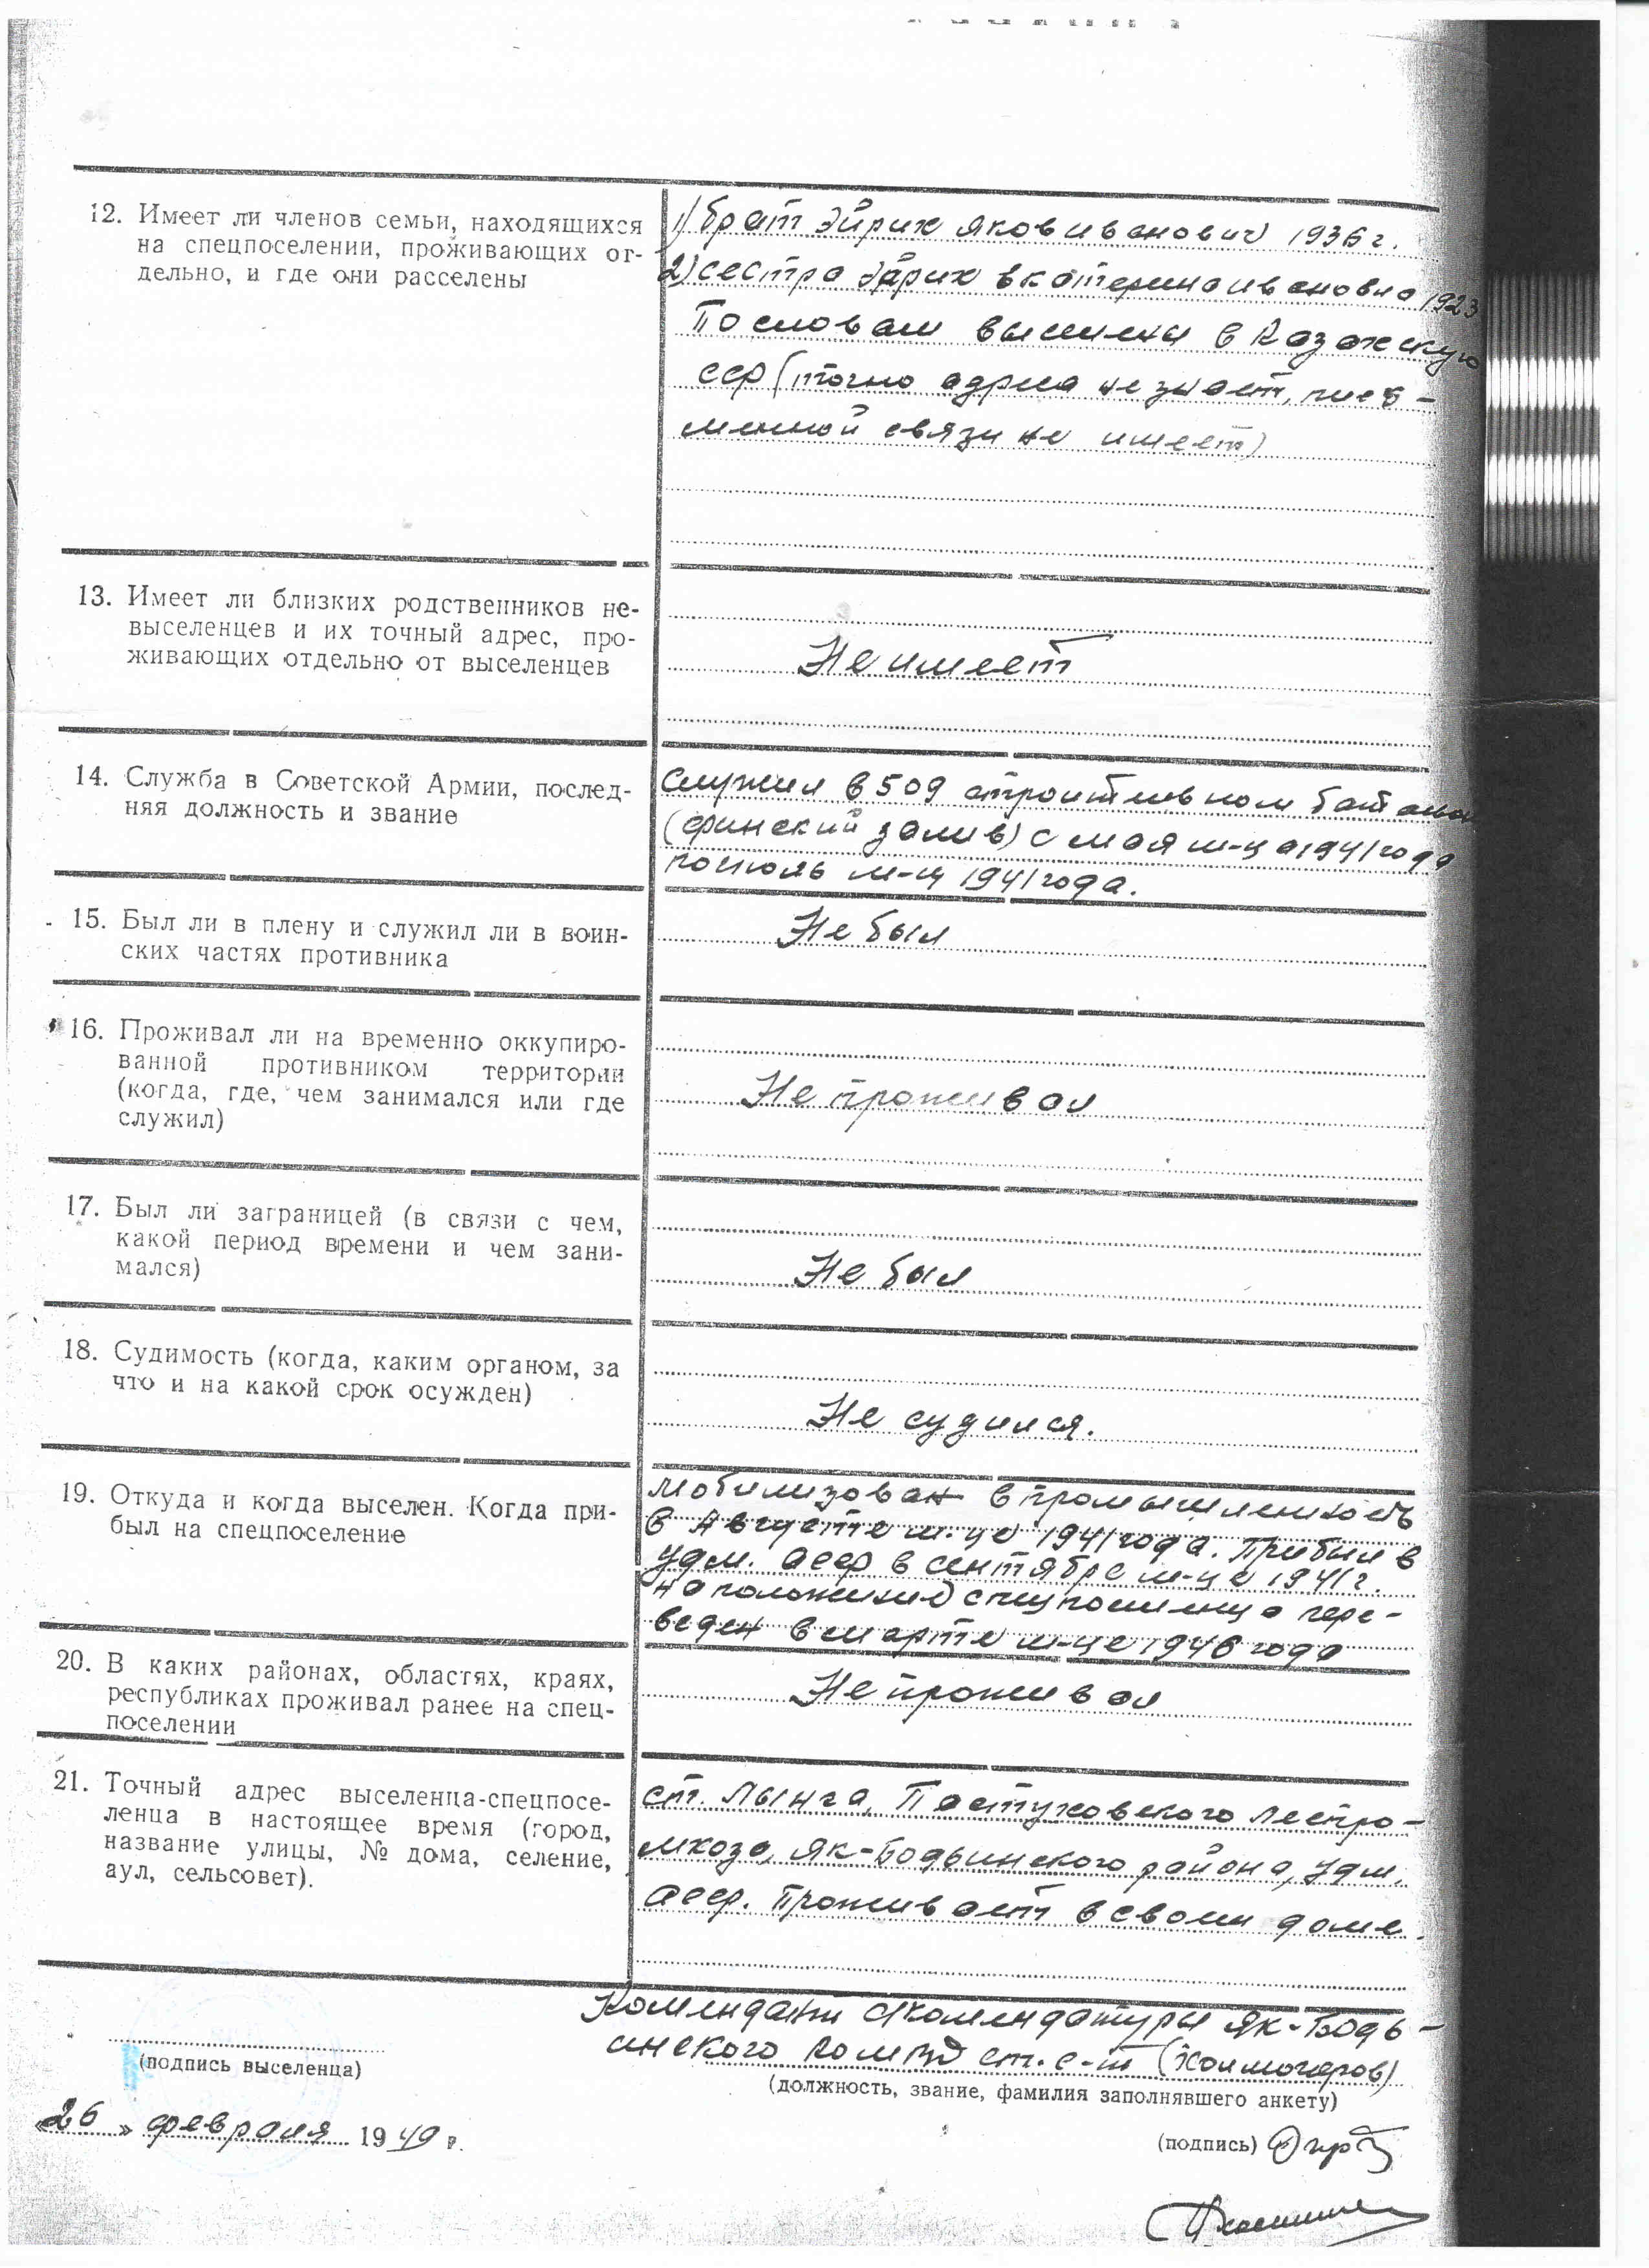 12. Имеет ли членов семьи, находящихся
на спецпоселении, проживающих от-
дельно, и где они расселены
1) брат Эйрих Яков иванович 1936 г.
2) сестра Эйрих Екатерина ивановна 1923
По словам выселены в Казахскую
ССР (точно адреса не знает, пись-
менной связи не имеет)
13. Имеет ли близких родственников не-
выселенцев и их точный адрес, про-
живающих отдельно от выселенцев
Не имеет
14. Служба в Советской Армии, послед-
няя должность и звание
Служил в 509 строительном батальон
(финский залив) с мая м-ца 1941 года
по июль м-ц 1941 года.
15. Был ли в плену и служил ли в воин-
ских частях противника
Не был
16. Проживал ли на временно оккупиро-
ванной противником территории
(когда, где, чем занимался или где
служил)
Не проживал
17. Был ли заграницей (в связи с чем,
какой период времени и чем зани-
мался)
Не был
18. Судимость (когда, каким органом, за
что и на какой срок осужден)
Не судился.
19. Откуда и когда выселен. Когда при-
был на спецпоселение
Мобилизован в промышленность
в Августе м-це 1941 года. Прибыл в
Удм. АССР в сентябре м-це 1941 г.
на положение спецпоселенца пере-
веден в марте м-це 1946 года
20. В каких районах, областях, краях,
республиках проживал ранее на спец-
поселении
Не проживал
21. Точный адрес выселенца-спецпосе-
ленца в настоящее время (город,
название улицы, № дома, селение,
аул, сельсовет).
ст. Лынга, Пастуховского Леспро-
мхоза, Як-Бодьинского района, Удм.
АССР. Проживает в своем доме.
Комендант спкомендатуры Як-Бодь-
инского РОМВД ст. с-т (Холмогоров)
(подпись выселенца)
(должность, звание, фамилия заполнявшего анкету)
«26» февраля 1949 г.
(подпись)